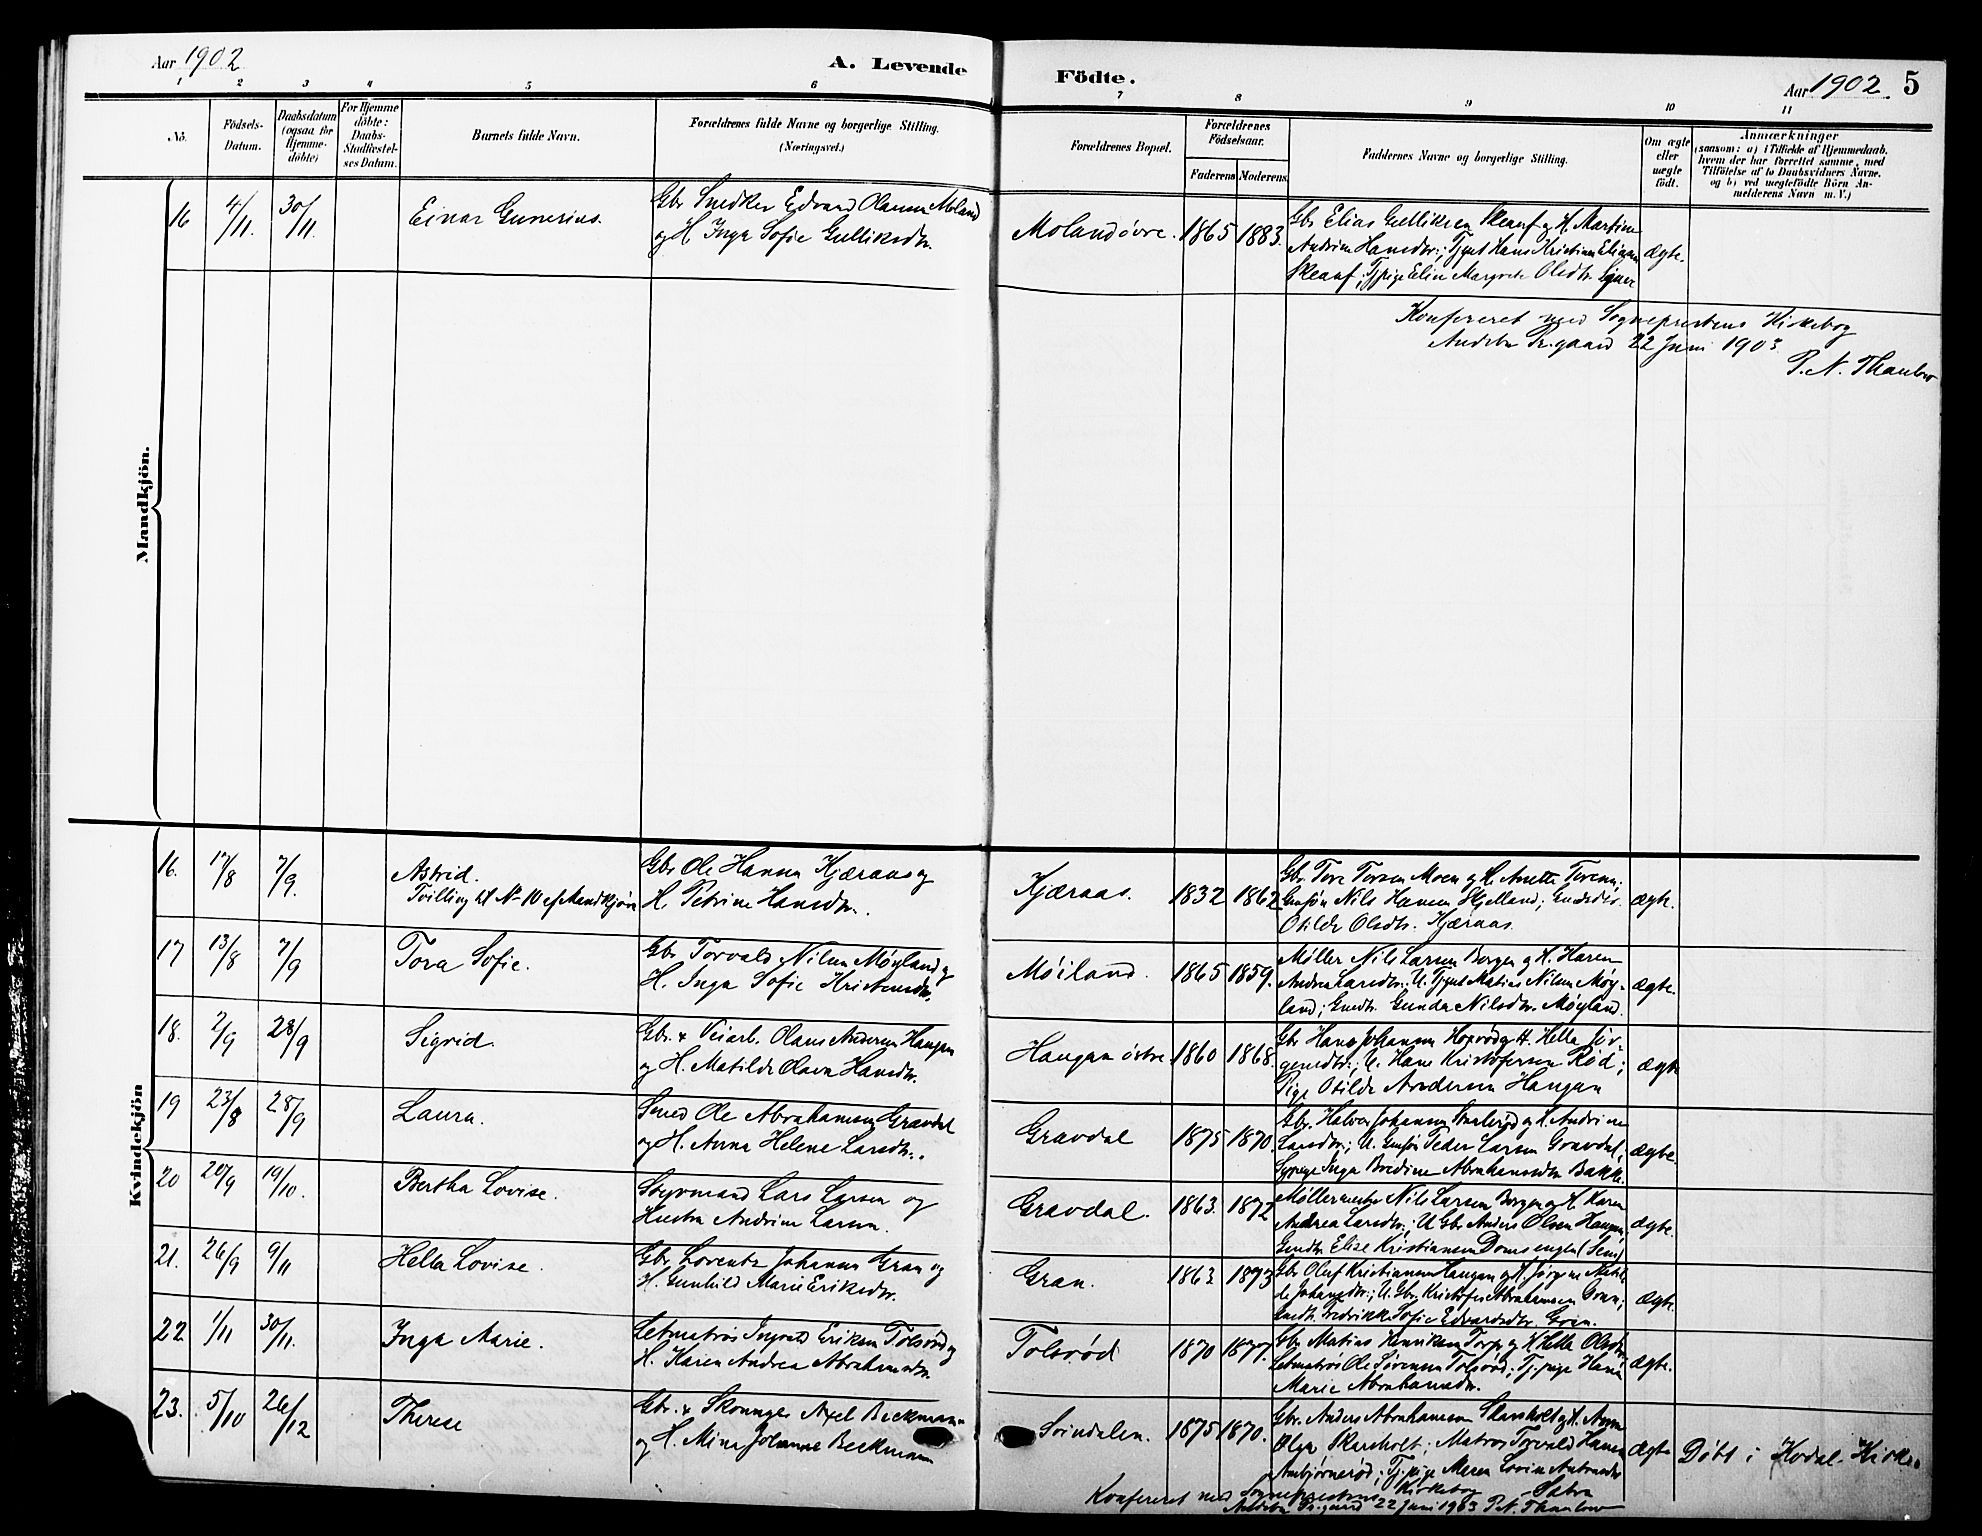 Aar 1902
A. Levende
Födte.
Aar 1902.
5
1 2 3 4 5 6 7 8 9 10 11
No.
Födsels-
Datum.
Daabsdatum
(ogsaa for
Hjemme-
döbte)
For Hjemme
döbte:
Daabs-
Stadfæstel-
ses Datum.
Barnets fulde Navn.
Forældrenes fulde Navne og borgerlige Stilling.
(Næringsvei.)
Forældrenes Bopæl.
Forældrenes
Födselsaar.
Faderens
Moderens.
Faddernes Navne og borgerlige Stilling.
Om ægte
eller
uægte
født.
Anmærkninger
(saasom: a) i Tilfælde af Hjemmedaab,
hvem der har forrettet samme, med
Tilföielse af to Daabsvidners Navne.
og b) ved uegtefödte Börn An-
melderens Navn m. V.)
Mandkjön.
16
4/11.
30/11.
Einar Gunerius.
Gbr Snedker Edvard Olausen Moland
og H. Inga Sofie Gulliksdtr.
Moland övre.
1865
1883.
Gbr Elias Gulliksen Skauf og H. Martine
Andrine Hansdtr.; Tjgut Hans Kristian Eliasen
Skauf; Tjpige Elin Margrete Olsdtr.
ægte.
Konfereret med Sogneprestens Kirkebog
Andebu Prgaard 22 Juni 1903
P. N. Thaulow
Kvindekjön
16.
17/8
7/9.
Astrid.
Tvilling til No 10 af Mandkjön
Gbr Ole Hansen Kjæraas og
H. Petrine Hansdtr.
Kjæraas.
1832
1862
Gbr Tore Torsen Moen og H. Anette Torsen;
Gmsön Nils Hansen Skjelland; Gmdtr.
Otilde Olsdtr. Kjæraas.
ægte.
17
13/8
7/9
Tora Sofie.
Gbr Torvald Nilsen Möyland og
H. Inga Sofie Kristensdtr.
Möiland.
1865
1859.
Möller Nils Larsen Borgen og H. Karen
Andrea Larsdtr.; U. Tjgut Matias Nilsen Möy-
land; Gmdtr. Gunda Nilsdtr. Möyland.
ægte.
18.
2/9
28/9
Sigrid.
Gbr. & Veiarb. Olaus Andersen Haugan
og H. Matilde Olava Hansdtr.
Haugan östre
1860
1868.
Gbr Hans Johansen Hoprød og H. Hella Jör-
gensdtr.; U. Hans Kristofersen Röd;
Pige Otilde Andersen Haugan
ægte
19
23/8
28/9
Laura.
Smed Ole Abrahamsen Gravdal
og H. Anna Helene Larsdtr..
Gravdal
1875
1870.
Gbr. Halvor Johansen og H. Andrine
Larsdtr.; U. Gmsön Peder Larsen Gravdal;
Sypige Inga Bredine Abrahamsdtr Bakke.
ægte.
20
20/9
19/10.
Bertha Lovise.
Styrmand Lars Larsen og
Hustru Andrine Larsen.
Gravdal.
1863.
1872
Möllermester Nils Larsen Borgen og H. Karen
Andrea Larsdtr.; U Gbr Anders Olsen Haugan;
Gmdtr Elise Kristiansen Domsengen (Sem)
ægte.
21.
26/9
9/11
Hella Lovise.
Gbr. Lorentz Johansen Gran og
H. Gunhild Marie Eriksdtr.
Gran.
1863
1873
Gbr Oluf Kristiansen Haugan og H. Jörgine Matil-
de Johansdtr.; U. Gbr. Kristofer Abrahamsen Gran;
Gmdtr. Fredrikke Sofie Edvardsdtr. Gran.
ægte.
22
1/11
30/11.
Inga Marie.
Letmatros Ingvald Eriksen Tolsröd og
H. Karen Andrea Abrahamsdtr.
Tolsröd
1870
1877.
Gbr. Matias Henriksen Torp og H. Hella Olsdtr.
Letmatros Ole Sörensen Tolsröd; Tj.pige Hanna
Marie Abrahamsdtr.
ægte.
23.
5/10
26/12
Therese
Gbr. & Skomager Axel Beckmann
og H. Mina Johanne Beckmann
Svindalen.
1875
1870.
Gbr. Anders Abrahamsen Skarsholt og H. Anna
Olga Skarsholt; Matros Torvald Hansen
Anbjörneröd; Tj.pige Maren Lovise
ægte
Döbt i Kodal Kirke.
Konfereret med Sogneprestens Kirkebog
Andebu Prgaard 22 Juni 1903 P. N. Thaulow